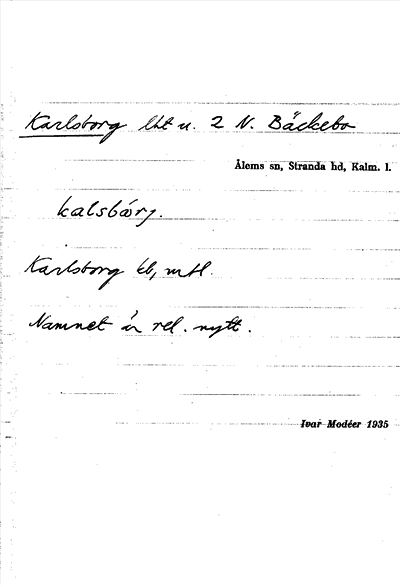 Karlsborg lht u. 2 N. Bäckebo
Ålems sn, Stranda hd, Kalm. l.
kalsbårj.
Karlsborg kb, mtl.
Namnet är rel. nytt.
Ivar Modéer 1935